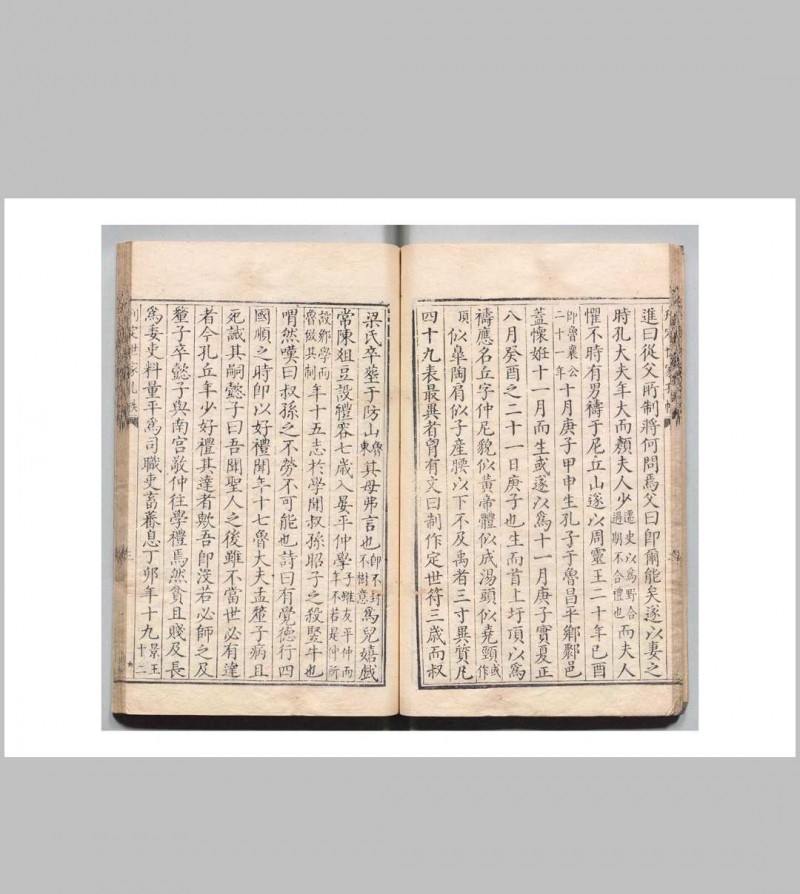 進曰從父所制將何問焉父曰即爾能矣遂以妻之
時孔大夫年大而顏夫人少遷史以爲野合過期不合禮也而夫人
懼不時有男禱于尼丘山遂以周靈王二十年已酉
即魯襄公二十一年十月庚子甲申生孔子于魯昌平鄉鄹邑
蓋懷姙十一月而生或遂以爲十一月庚子實夏正
八月癸酉之二十一日庚子也生而首上圩頂以爲
禱應名丘字仲尼貌似黃帝體似成湯頭似堯顙或作頂
似臯陶肩似子産腰以下不及禹者三寸異質凡
四十九表最異者胷有文曰制作定世符三歲而叔
梁氏卒塟于防山魯東其母弗言也即不封不樹意爲兒嬉戲
常陳爼豆設禮容七歲入晏平仲學子雖友平仲而年不若是仲所
故鄉學而魯倣其制年十五志於學聞叔孫昭子之殺竪牛也
喟然嘆曰叔孫之不勞不可能也詩曰有覺德行四
國順之時即以好禮聞年十七魯大夫孟釐子病且
死誡其嗣懿子曰吾聞聖人之後雖不當世必有達
者今孔丘年少好禮其達者歟吾即沒若必師之及
釐子卒懿子與南宮敬仲往學禮焉然貧且賤及長
爲委吏料量平爲司職吏畜蕃息丁卯年十九景王十二